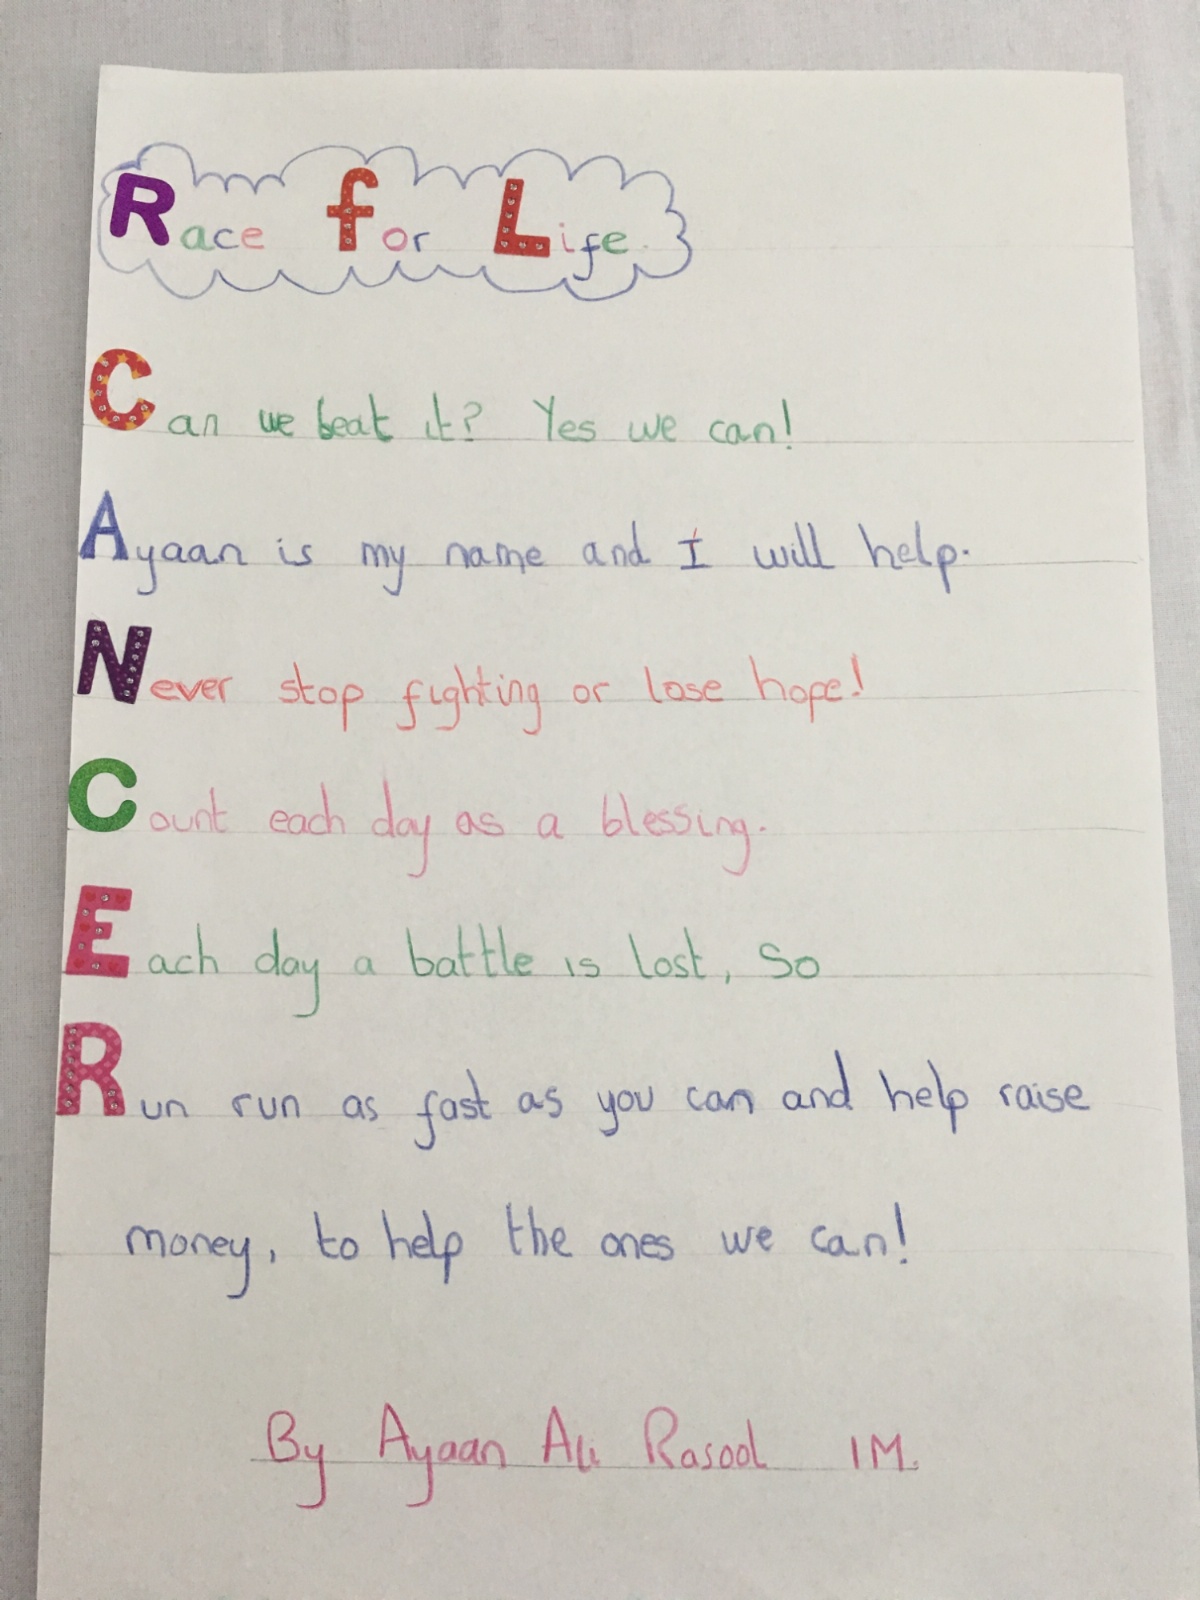 Race for Life.
Can we beat it? Yes we can!
Ayaan is my name and I will help.
Never stop fighting or lose hope!
Count each day as a blessing.
Each day a battle is lost, So
Run run as fast as you can and help raise
money, to help the ones we can!
By Ayaan Ali Rasool 1M.